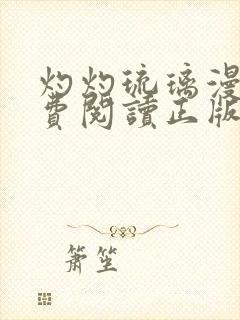 灼灼琉璃漫
費閱讀正版
簫笙